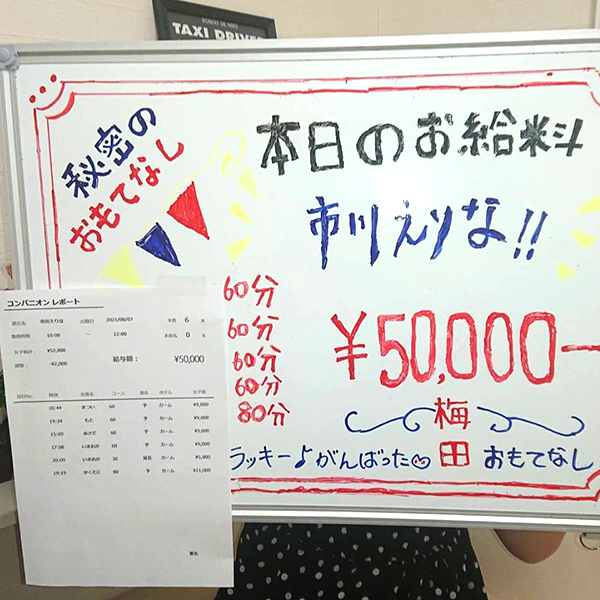 ROBERT DE NIRO
TAXI DRIVER
秘密の
おもてなし
本日のお給料
市川えりな!!
60分
60分
60分
60分
80分
¥50,000-
梅
田
ラッキー♪がんばった
おもてなし
コンパニオン レポート
源氏名 市川えりな 出勤日 2021/06/07 本数 6 本
勤務時間 10:00 ～ 22:00 本指名 0 本
女子給計: ¥52,000
調整: -¥2,000 給与額： ¥50,000
当日No. 時刻 会員名 コース 指名 ホテル 女子給
10:44 まつい 60 予 カーム ¥9,000
もと 60 予 カーム ¥9,000
15:09 あさだ 60 予 カーム ¥9,000
17:08 いまおか 60 予 カーム ¥9,000
20:09 いまおか 30 延長 カーム ¥5,000
19:19 かくたに 80 予 カーム ¥11,000
署名